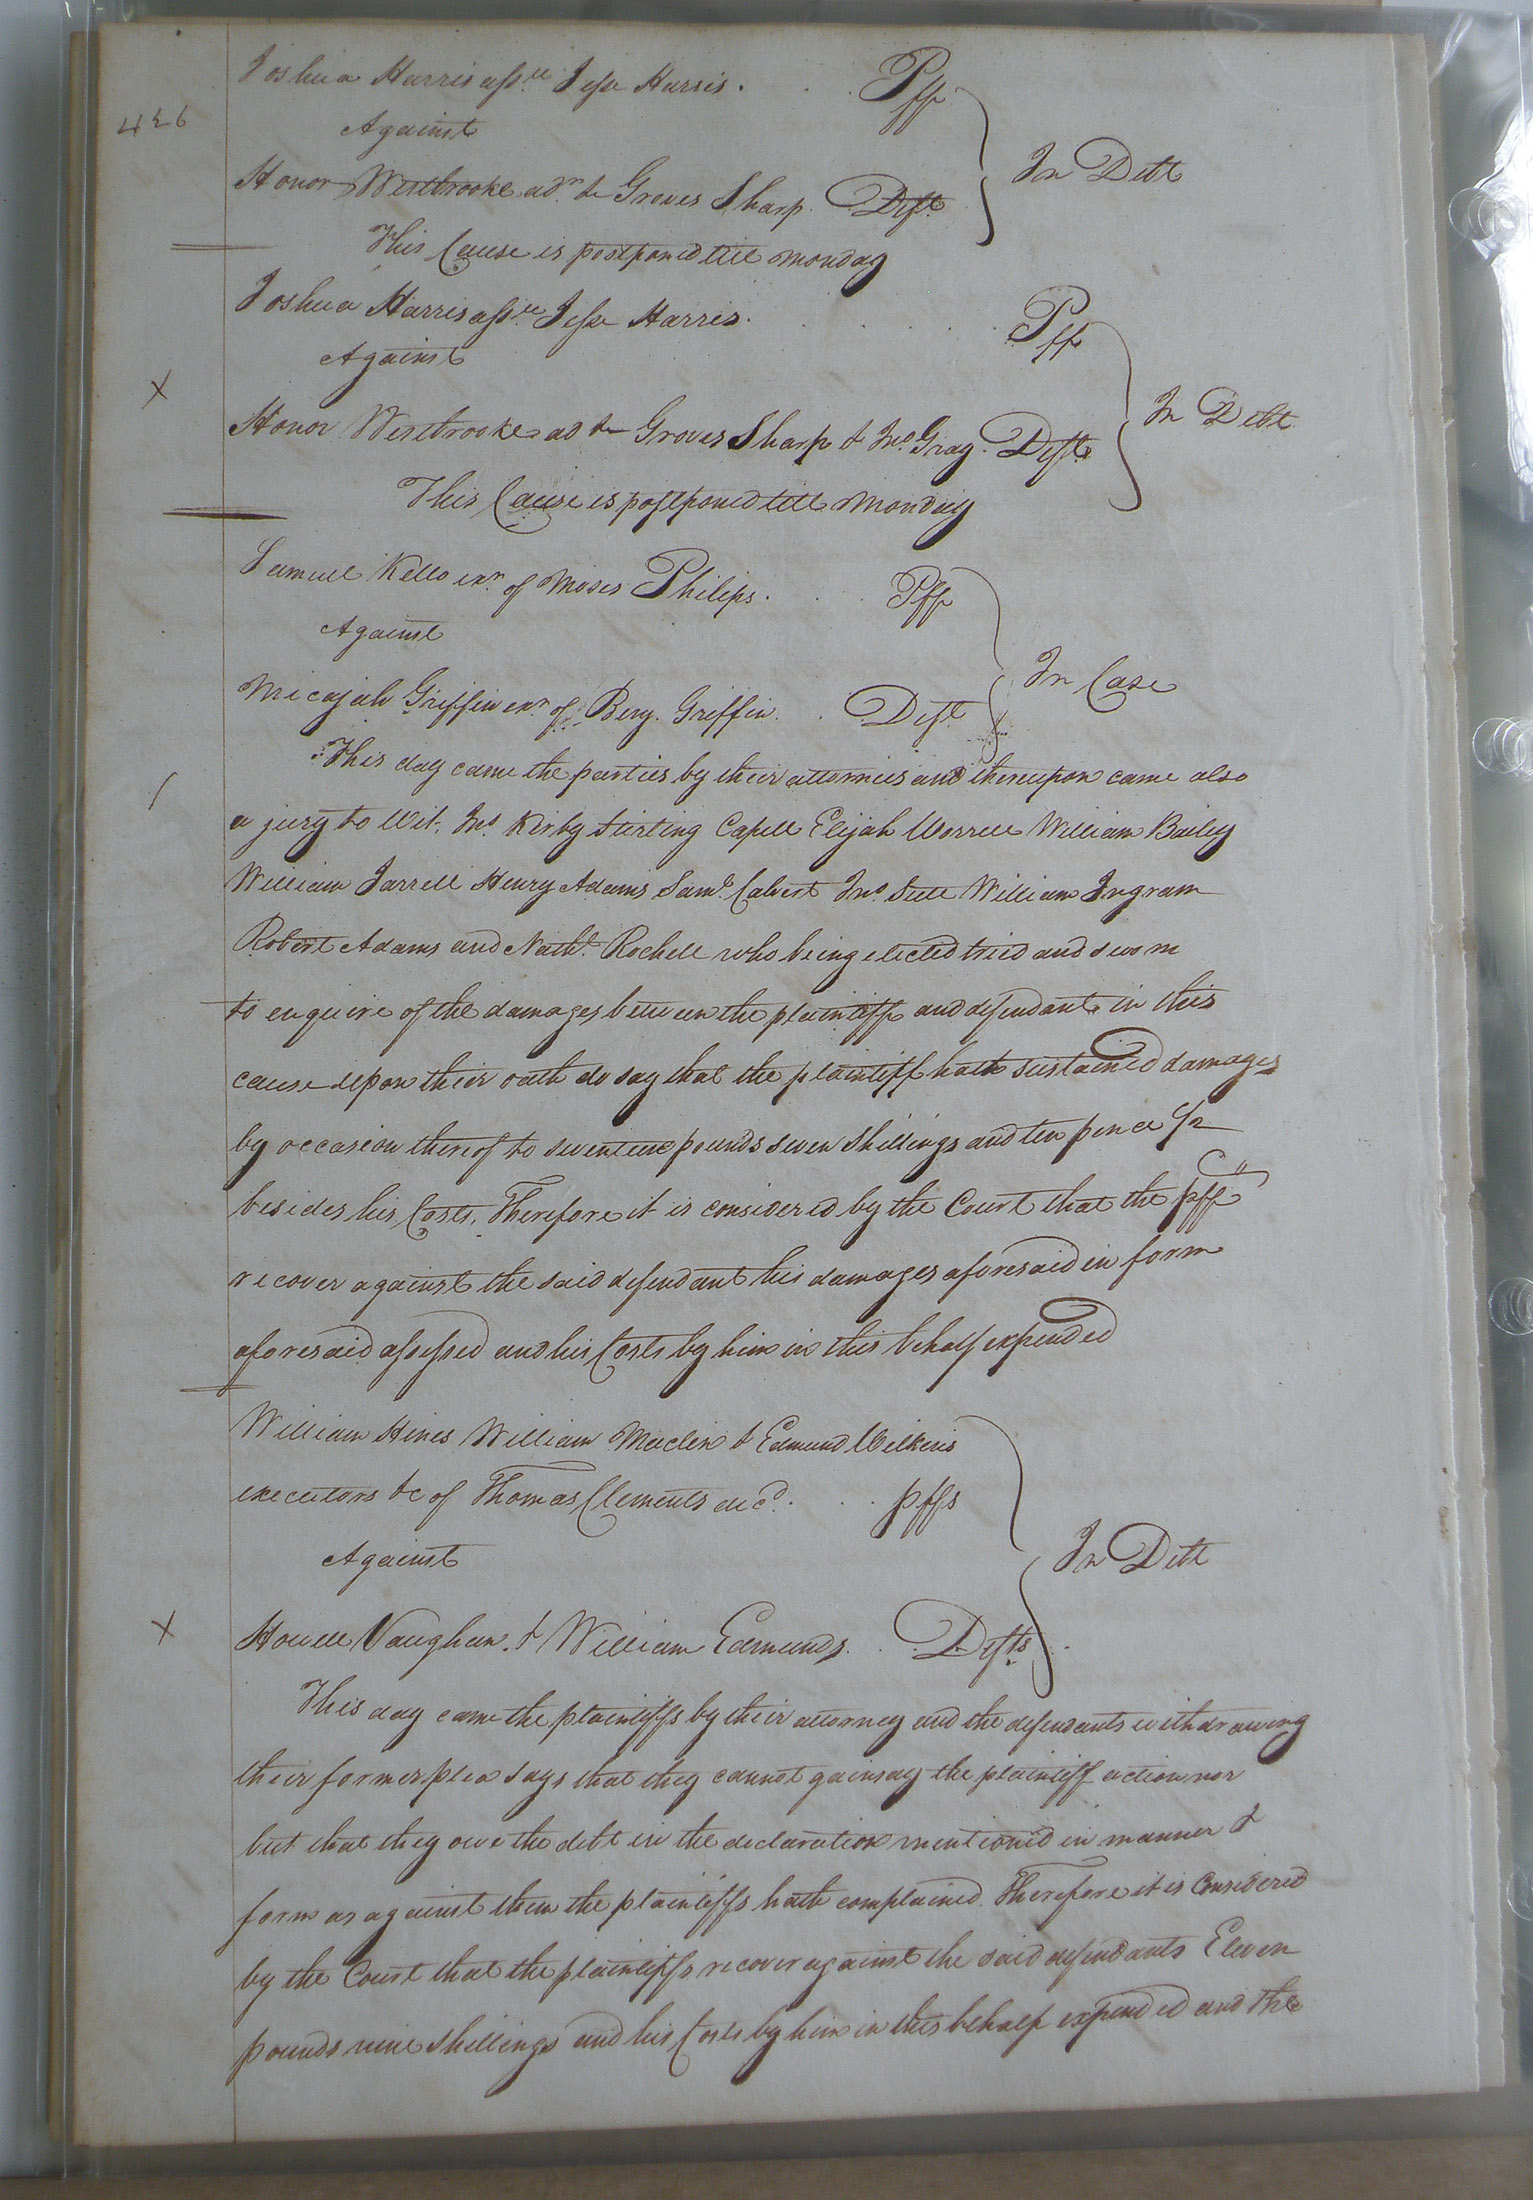 Joshua Harris assee Jesse Harris . . . Pff
426
Against
In Debt
Honor Westbrooke adr &c Groves Sharp. Deft
This Cause is postponed till monday
Joshua Harris assee Jesse Harris. . . . . Pff
Against
X
In Debt
Honor Westbrooke ad &c Groves Sharp & Jno Gray. Defts
This Cause is postponed till Monday
Samuel Kello exr of Moses Philips. . . Pff
Against
In Case
Micajah Griffin exr of Benj. Griffin. . Deft
This day came the parties by their attornies and thereupon came also
a jury to Wit, Jno Kirby Stirling Capell Elijah Worrell William Bailey
William Jarrell Henry Adams Saml Calvert Jno William Ingram
Robert Adams and Nathl Rochell who being elected tried and sworn
to enquire of the damages between the plaintiff and defendant in this
cause upon their oath do say that the plaintiff hath sustained damages
by occasion thereof to seventeen pounds seven Shillings and ten pence
besides his Costs, Therefore it is considered by the Court that the pff
recover against the said defendant his damages aforesaid in form
aforesaid assessed and his Costs by him in this behalf expended
William Hines William Maclin & Edmund Wilkins
executors &c of Thomas Clements decd. . . pffs
Against
In Debt
X
Howell Vaughan & William Edmunds . . Defts
This day came the plaintiffs by their attorney and the defendants withdrawing
their former plea says that they cannot gainsay the plaintiff action nor
but that they owe the debt in the declaration mentioned in manner &
form as against them the plaintiffs hath complained. Therefore it is Considered
by the Court that the plaintiffs recover against the said defendants Eleven
pounds nine shillings and his Costs by him in this behalf expended and the